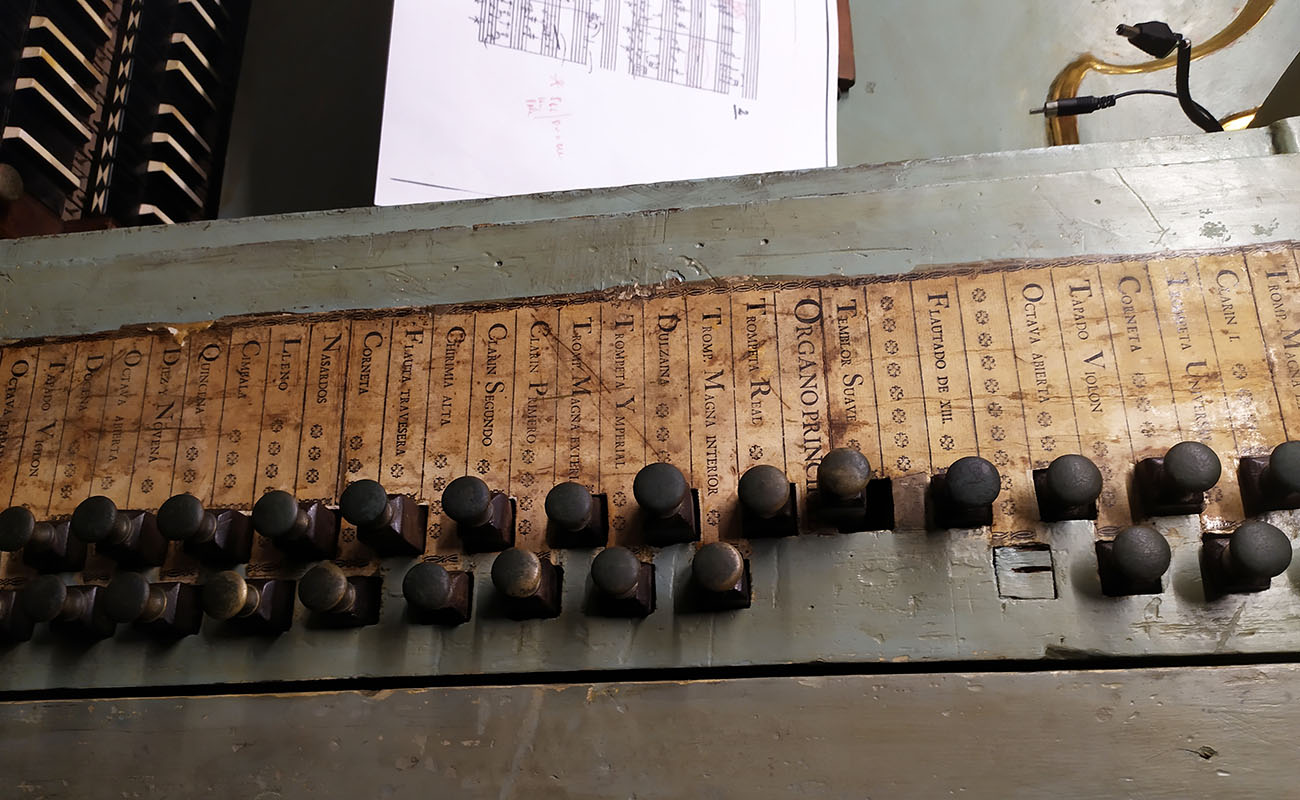 TROMP. MAGNA
CLARIN I
TROMPETA UNIVERS
CORNETA
TAPADO VIOLON
OCTAVA ABIERTA
FLAUTADO DE XIII.
TEMBLOR SUAVE
ORGANO PRINC
TROMPETA REAL
TROMP. MAGNA INTERIOR
DULZAINA
TROMPETA YMPERIAL
TROMP. MAGNA EXTER
CLARIN PRIMERO
CLARIN SEGUNDO
CHIRIMIA ALTA
FLAUTA TRAVESERA
CORNETA
NASARDOS
LLENO
CIMBALA
QUINCENA
DIEZ NOVENA
OCTAVA ABIERTA
DOCENA
TAPADO VIOLON
OCTAVA
2